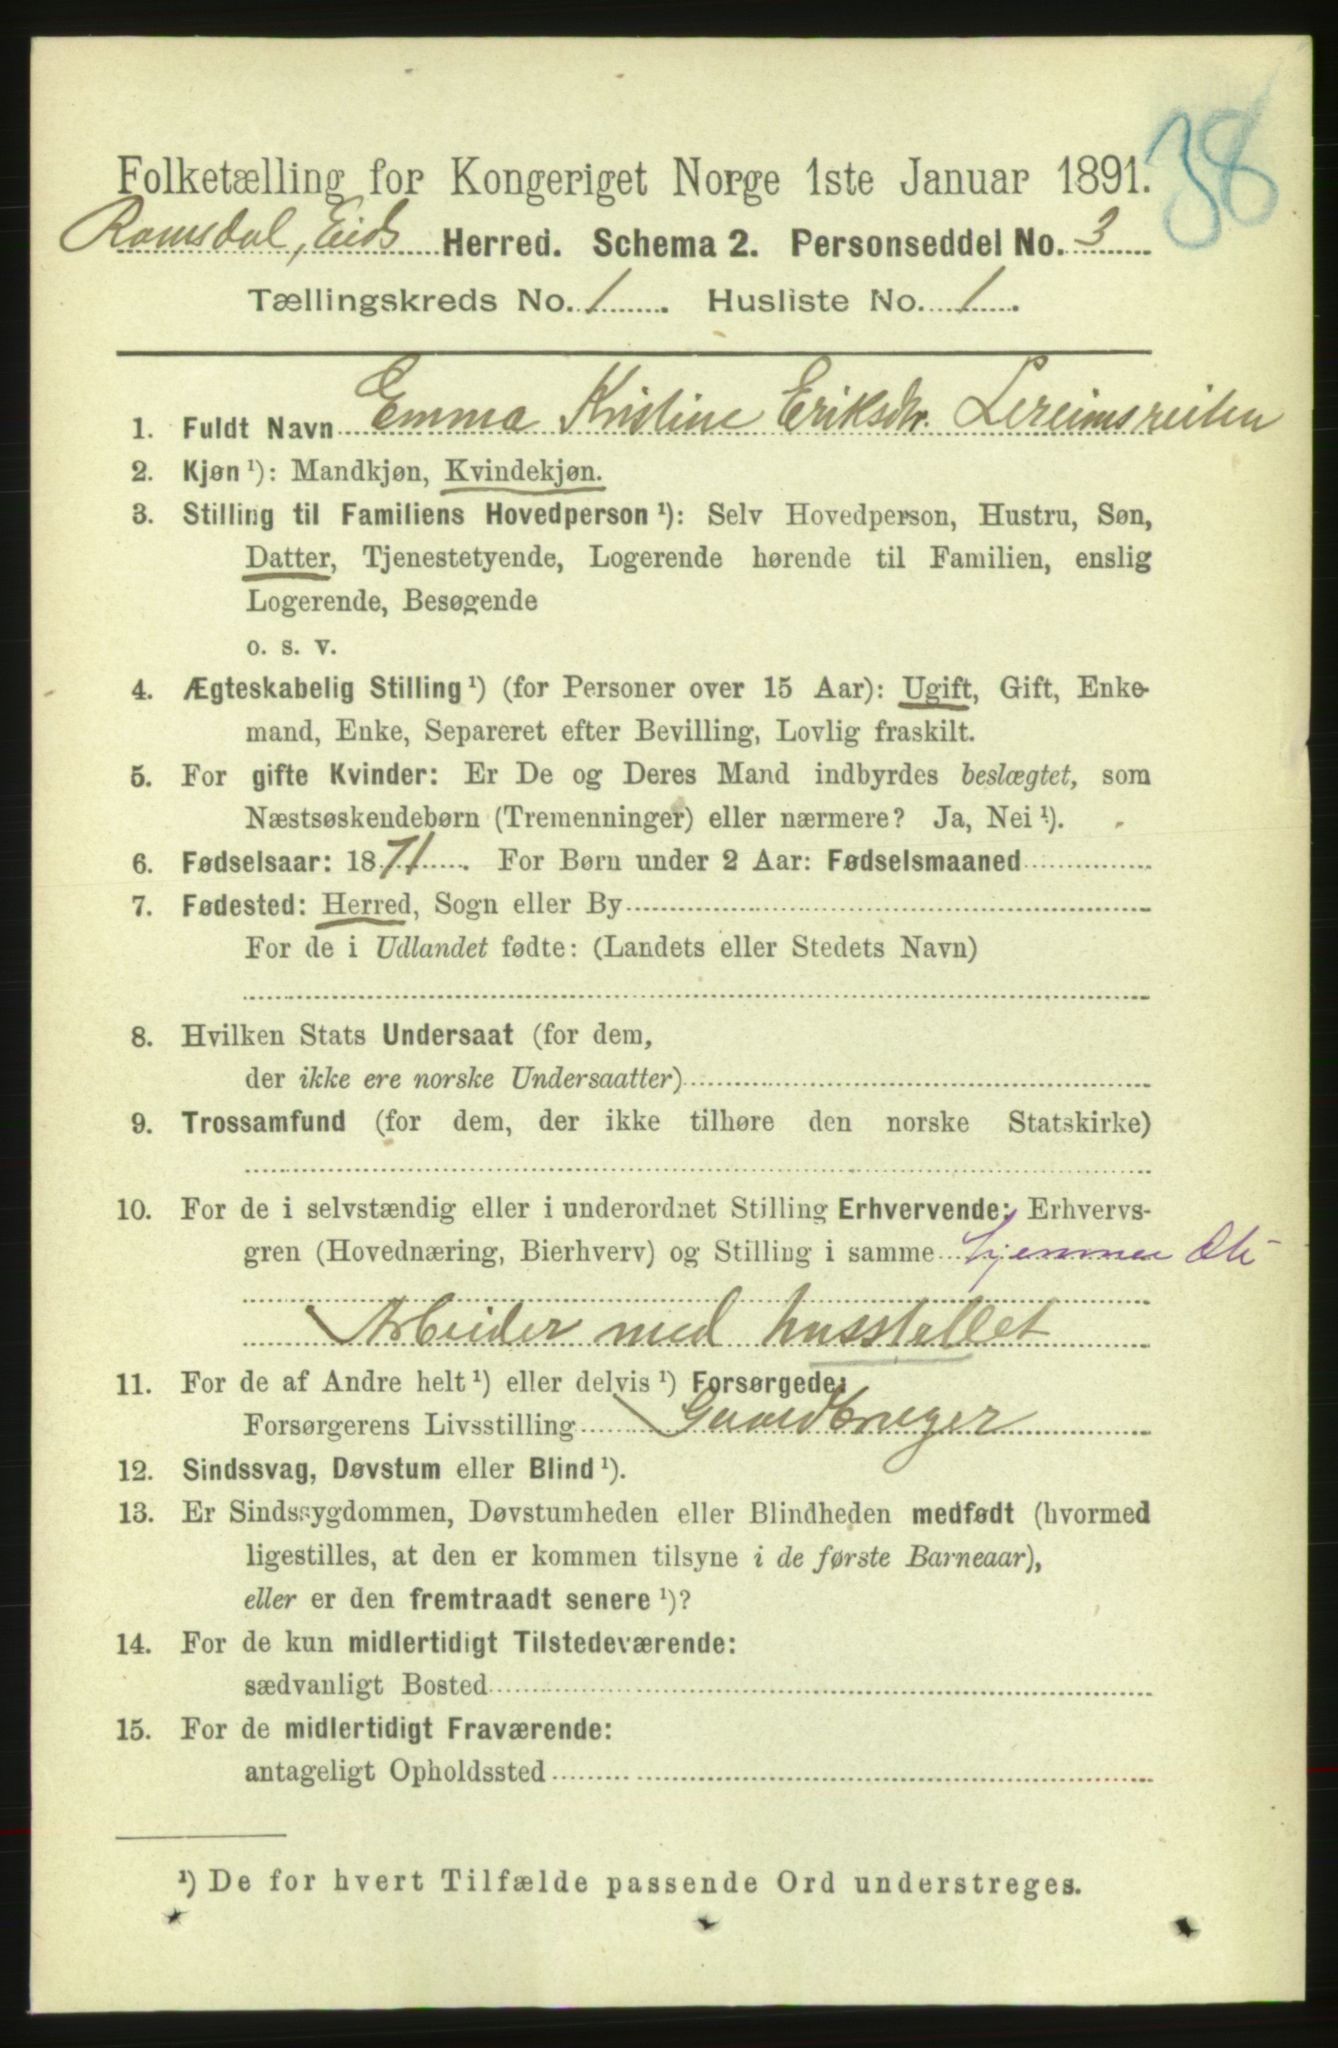 38
Folketælling for Kongeriget Norge 1ste Januar 1891.
Romsdal, Eids Herred. Schema 2. Personseddel No. 3
Tællingskreds No. 1. Husliste No. 1.
1. Fuldt Navn Emma Kristine Eriksdtr. Lereimsreiten
2. Kjøn ¹): Mandkjøn, Kvindekjøn.
3. Stilling til Familiens Hovedperson ¹): Selv Hovedperson, Hustru, Søn,
Datter, Tjenestetyende, Logerende hørende til Familien, enslig
Logerende, Besøgende
o. s. v.
4. Ægteskabelig Stilling ¹) (for Personer over 15 Aar): Ugift, Gift, Enke-
mand, Enke, Separeret efter Bevilling, Lovlig fraskilt.
5. For gifte Kvinder: Er De og Deres Mand indbyrdes beslægtet, som
Næstsøskendebørn (Tremenninger) eller nærmere? Ja, Nei ¹).
6. Fødselsaar: 1871. For Børn under 2 Aar: Fødselsmaaned
7. Fødested: Herred, Sogn eller By
For de i Udlandet fødte: (Landets eller Stedets Navn)
8. Hvilken Stats Undersaat (for dem,
der ikke ere norske Undersaatter)
9. Trossamfund (for dem, der ikke tilhøre den norske Statskirke)
10. For de i selvstændig eller i underordnet Stilling Erhvervende: Erhvervs-
gren (Hovednæring, Bierhverv) og Stilling i samme hjemmev
Arbeider med husstellet
11. For de af Andre helt ¹) eller delvis ¹) Forsørgede:
Forsørgerens Livsstilling Gaardbruger
12. Sindssvag, Døvstum eller Blind ¹).
13. Er Sindssygdommen, Døvstumheden eller Blindheden medfødt (hvormed
ligestilles, at den er kommen tilsyne i de første Barneaar),
eller er den fremtraadt senere ¹)?
14. For de kun midlertidigt Tilstedeværende:
sædvanligt Bosted
15. For de midlertidigt Fraværende:
antageligt Opholdssted
¹) De for hvert Tilfælde passende Ord understreges.